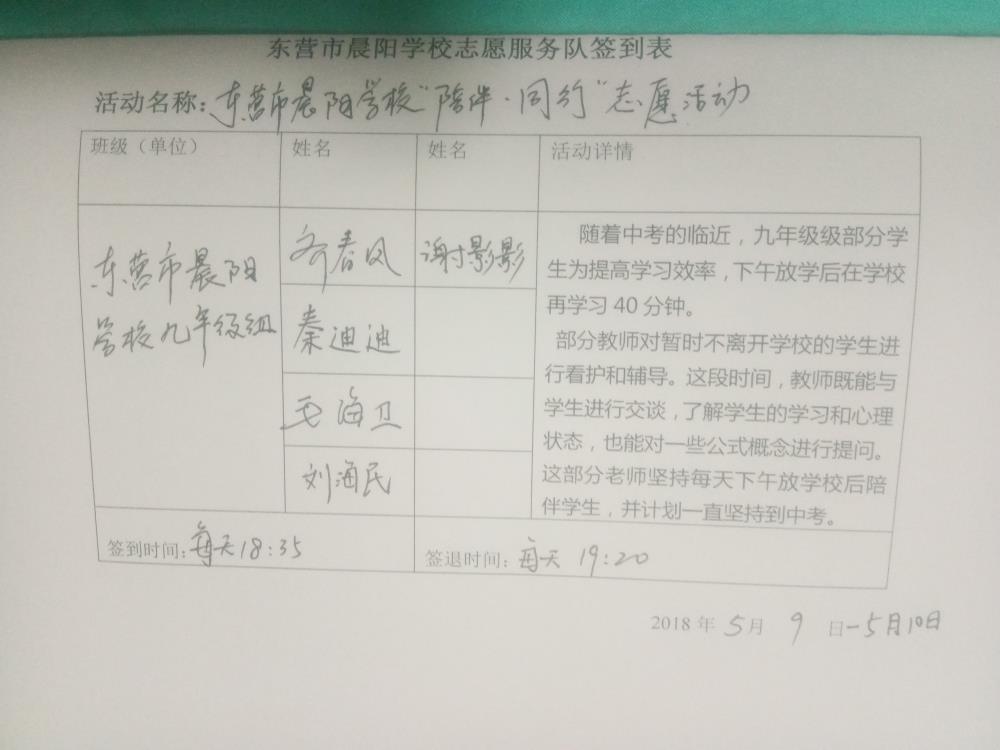 东营市晨阳学校志愿服务队签到表
活动名称：东营市晨阳学校“陪伴·同行”志愿活动
班级（单位） 姓名 姓名 活动详情
东营市晨阳
学校九年级组
齐春风 谢影影
秦迪迪
毛海卫
刘海民
随着中考的临近，九年级级部分学
生为提高学习效率，下午放学后在学校
再学习 40 分钟。
部分教师对暂时不离开学校的学生进
行看护和辅导。这段时间，教师既能与
学生进行交谈，了解学生的学习和心理
状态，也能对一些公式概念进行提问。
这部分老师坚持每天下午放学校后陪
伴学生，并计划一直坚持到中考。
签到时间：每天18:35 签退时间：每天 19:20
2018 年 5 月 9 日-5月10日